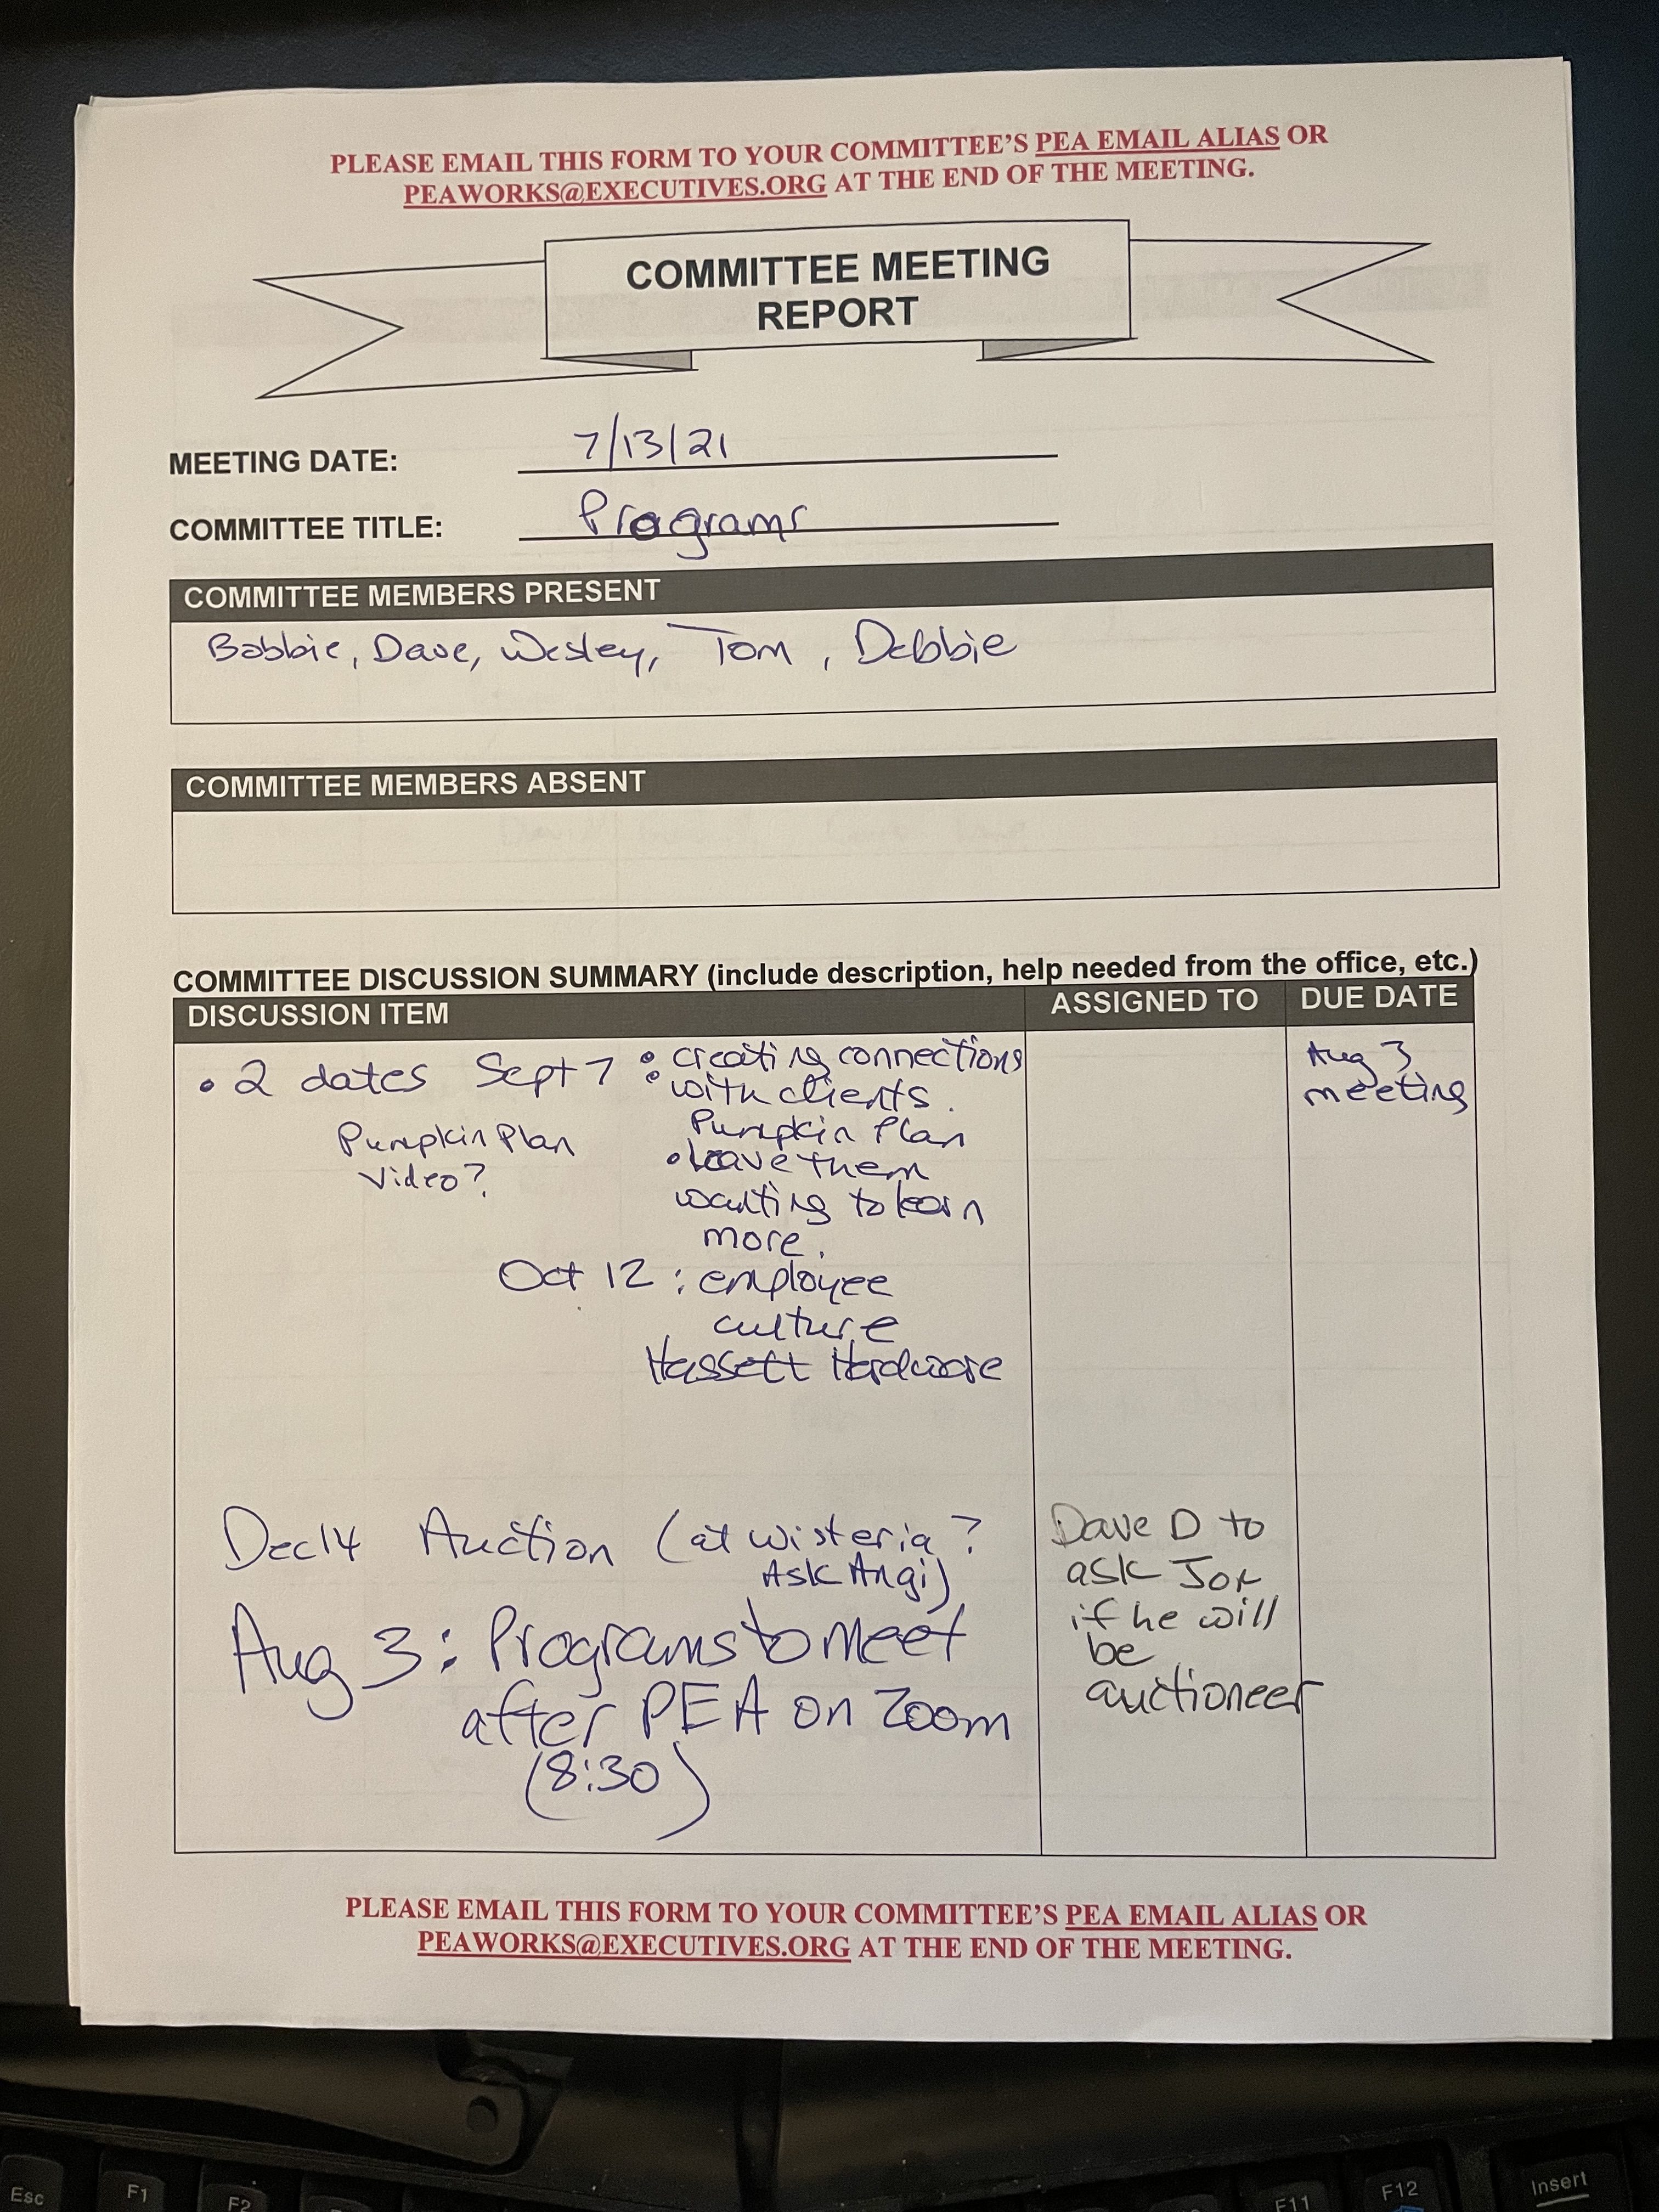 PLEASE EMAIL THIS FORM TO YOUR COMMITTEE'S PEA EMAIL ALIAS OR
PEAWORKS@EXECUTIVES.ORG AT THE END OF THE MEETING.
COMMITTEE MEETING
REPORT
MEETING DATE: 7/13/21
COMMITTEE TITLE: Programs
COMMITTEE MEMBERS PRESENT
Bobbie, Dave, Wesley, Tom, Debbie
COMMITTEE MEMBERS ABSENT
COMMITTEE DISCUSSION SUMMARY (include description, help needed from the office, etc.)
DISCUSSION ITEM ASSIGNED TO DUE DATE
• 2 dates Sept 7 : • creating connections
with clients.
Pumpkin Plan
Video?
Pumpkin Plan
• Leave them
wanting to learn
more.
Oct 12 : employee
culture
Hassett Hardware
Aug 3
meeting
Dec 14 Auction (at wisteria?
Ask Angi)
Dave D to
ask Joe
if he will
be
auctioneer
Aug 3: Programs to meet
after PEA on Zoom
(8:30)
PLEASE EMAIL THIS FORM TO YOUR COMMITTEE'S PEA EMAIL ALIAS OR
PEAWORKS@EXECUTIVES.ORG AT THE END OF THE MEETING.
Esc
F1
F2
F11
F12
Insert